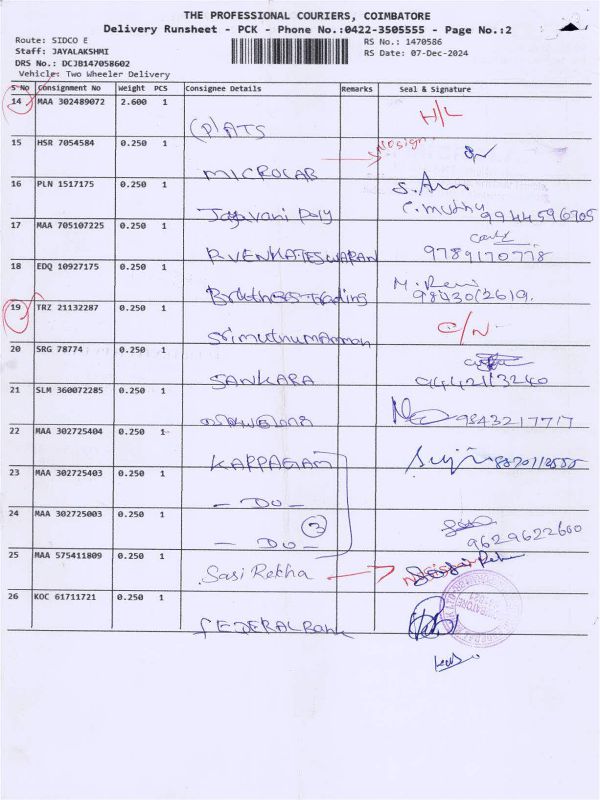 THE PROFESSIONAL COURIERS, COIMBATORE
Delivery Runsheet - PCK - Phone No.:0422-3505555 - Page No.:2
Route: SIDCO E
RS No.: 1470586
Staff: JAYALAKSHMI
RS Date: 07-Dec-2024
DRS No.: DCJB147058602
Vehicle: Two Wheeler Delivery
S No Consignment No Weight PCS Consignee Details Remarks Seal & Signature
14 MAA 302489072 2.600 1 (P)ATS H/L
15 HSR 7054584 0.250 1 MICROLAB
16 PLN 1517175 0.250 1 Jayavani Poly C. muthu 9944596705
17 MAA 705107225 0.250 1 R.VENKATESWARAN 9789170778
18 EDQ 10927175 0.250 1 Brothers Trading 9843012619.
19 TRZ 21132287 0.250 1 Srimuthumamman C/N
20 SRG 78774 0.250 1 SANKARA 9442113240
21 SLM 360072285 0.250 1 9843217717
22 MAA 302725404 0.250 1 KARPAGAM
23 MAA 302725403 0.250 1 - DO -
24 MAA 302725003 0.250 1 - DO - 3 9629622600
25 MAA 575411809 0.250 1 Sasi Rekha
26 KOC 61711721 0.250 1 FEDERAL Bank